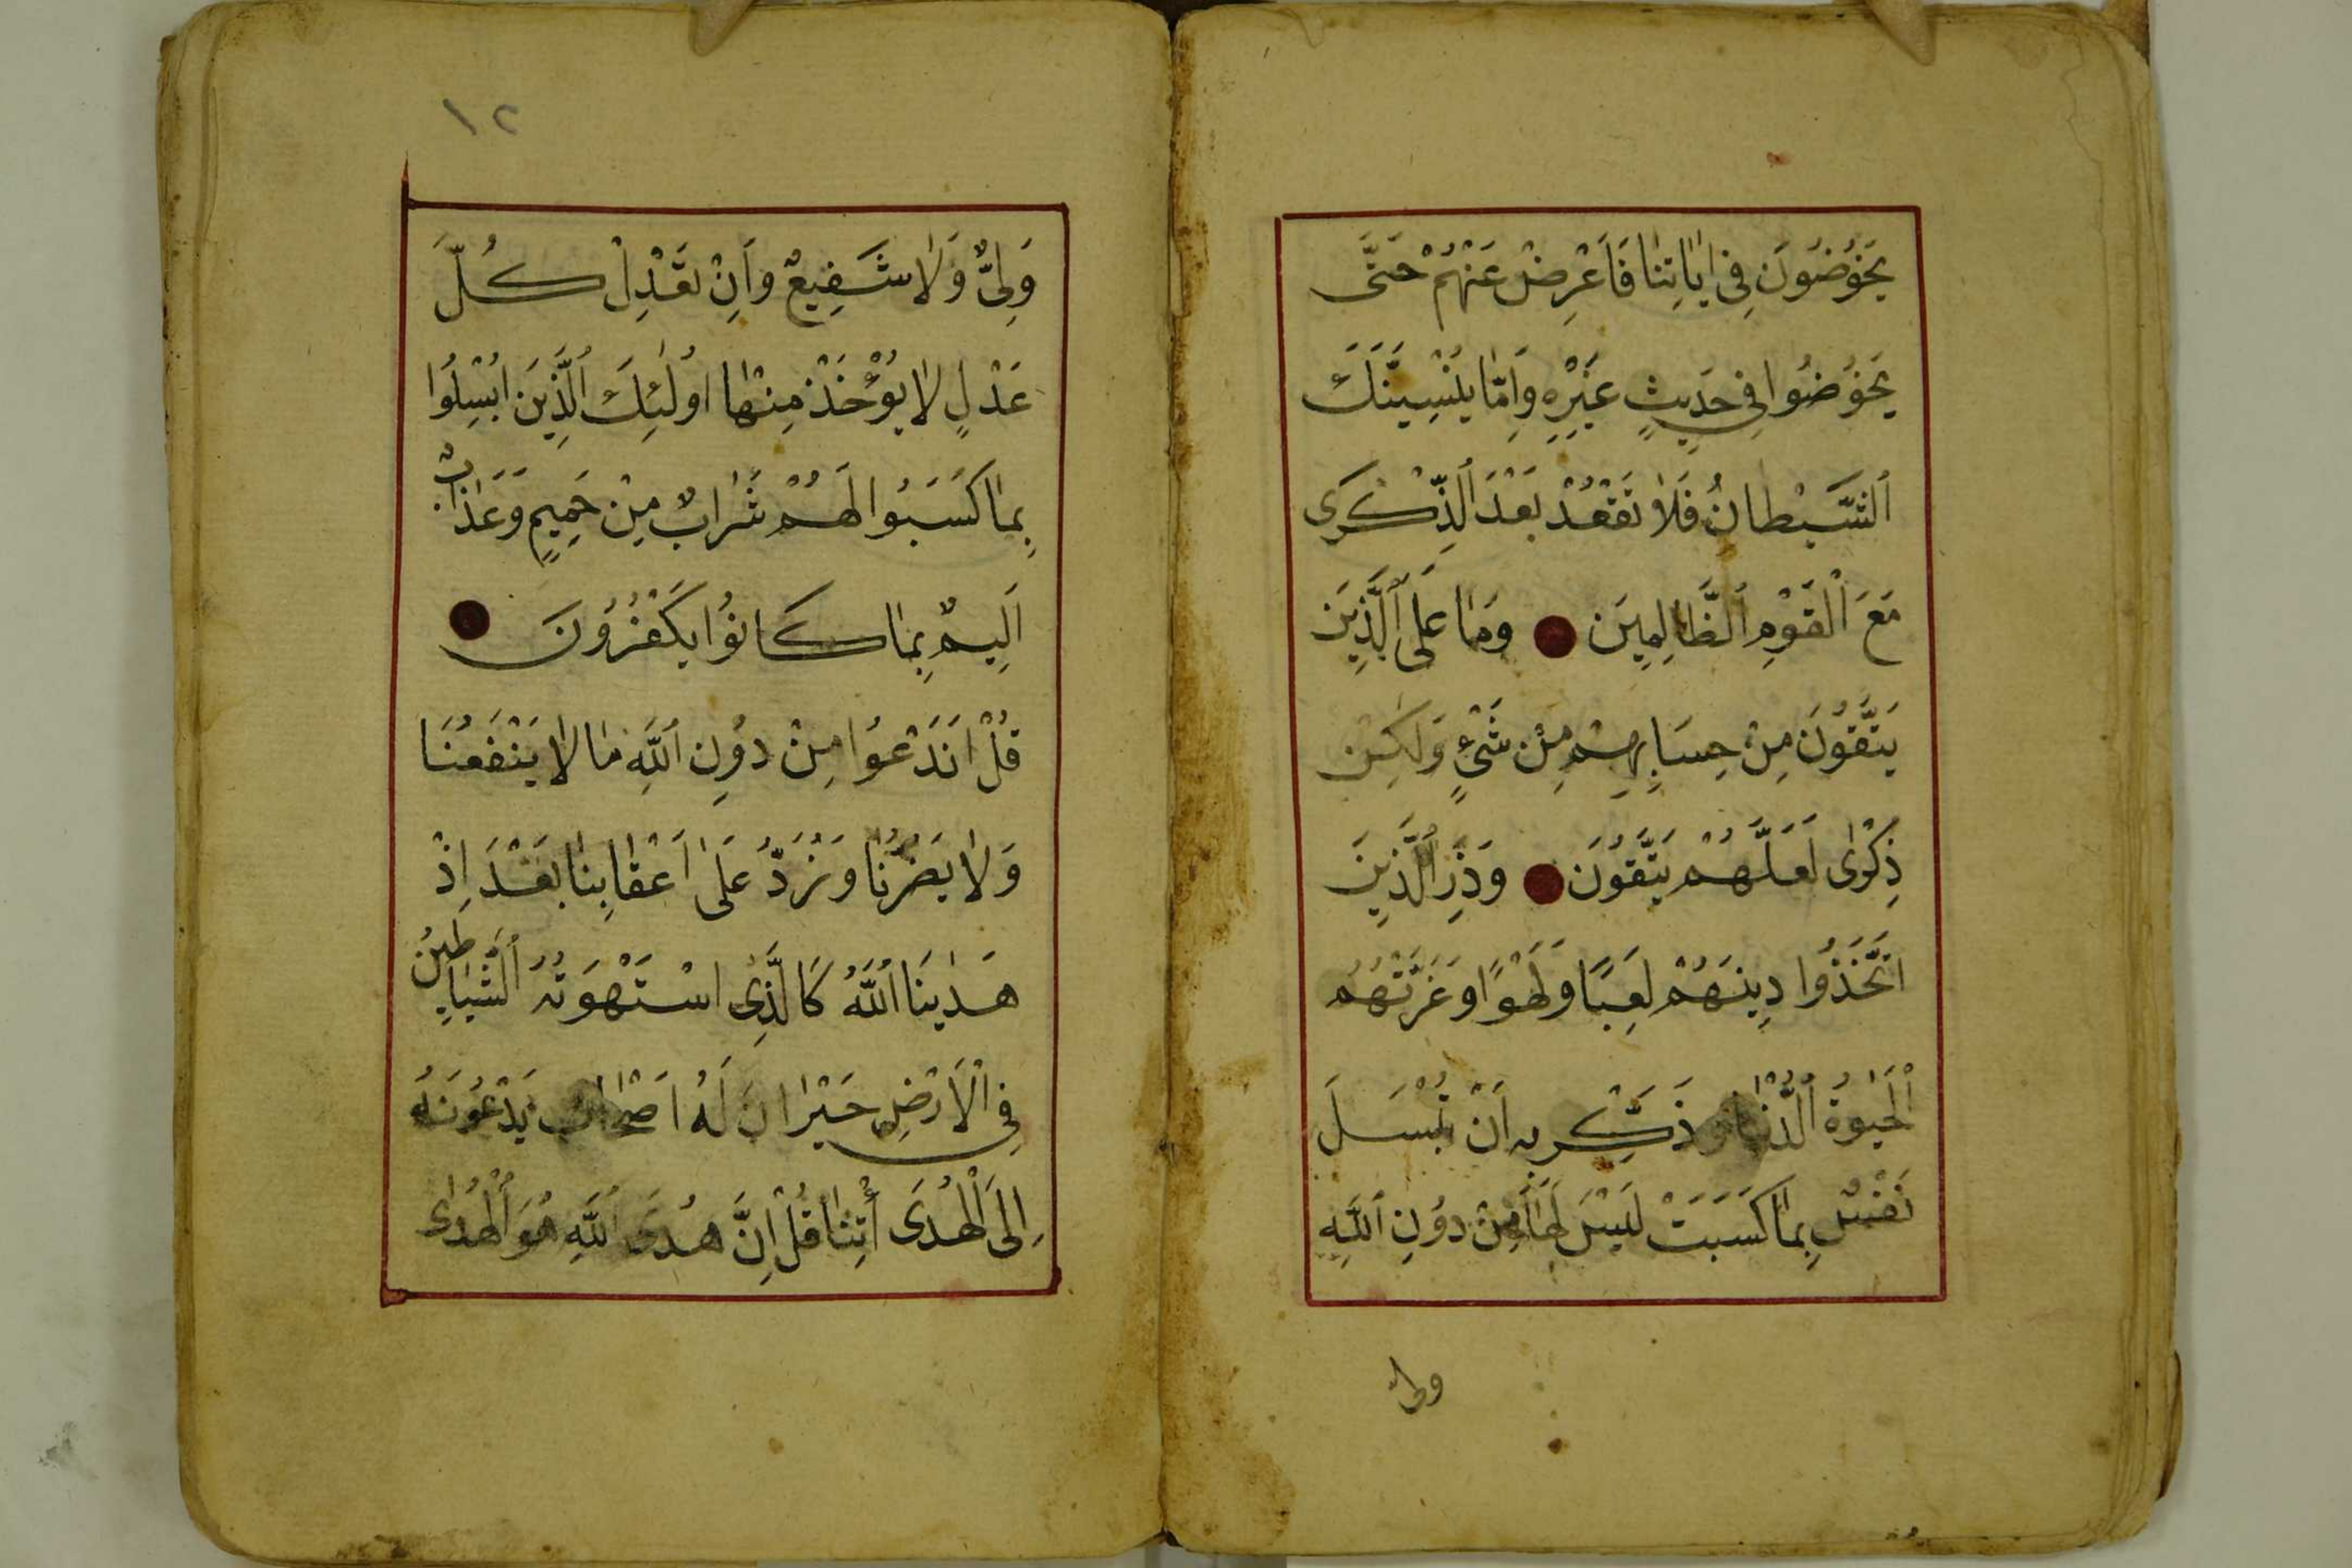 يَخُوضُونَ فِي اٰيَاتِنَا فَاَعْرِضْ عَنْهُمْ حَتّٰى
يَخُوضُوا فِي حَدِيثٍ غَيْرِهِ وَاِمَّا يُنْسِيَنَّكَ
اَلشَّيْطَانُ فَلَا تَقْعُدْ بَعْدَ الذِّكْرَى
مَعَ الْقَوْمِ الظَّالِمِينَ وَمَا عَلَى الَّذِينَ
يَتَّقُونَ مِنْ حِسَابِهِمْ مِنْ شَيْءٍ وَلٰكِنْ
ذِكْرٰى لَعَلَّهُمْ يَتَّقُونَ وَذَرِ الَّذِينَ
اتَّخَذُوا دِينَهُمْ لَعِبًا وَلَهْوًا وَغَرَّتْهُمُ
الْحَيٰوةُ الدُّنْيَا وَذَكِّرْ بِهِ اَنْ تُبْسَلَ
نَفْسٌ بِمَا كَسَبَتْ لَيْسَ لَهَا مِنْ دُونِ اللّٰهِ
ولى
١٢
وَلِيٌّ وَلَا شَفِيعٌ وَاِنْ تَعْدِلْ كُلَّ
عَدْلٍ لَا يُؤْخَذْ مِنْهَا اُولٰئِكَ الَّذِينَ اُبْسِلُوا
بِمَا كَسَبُوا لَهُمْ شَرَابٌ مِنْ حَمِيمٍ وَعَذَابٌ
اَلِيمٌ بِمَا كَانُوا يَكْفُرُونَ
قُلْ اَنَدْعُوا مِنْ دُونِ اللّٰهِ مَا لَا يَنْفَعُنَا
وَلَا يَضُرُّنَا وَنُرَدُّ عَلٰى اَعْقَابِنَا بَعْدَ اِذْ
هَدٰينَا اللّٰهُ كَالَّذِى اسْتَهْوَتْهُ الشَّيَاطِينُ
فِي الْاَرْضِ حَيْرَانَ لَهُ اَصْحَابٌ يَدْعُونَهُ
اِلَى الْهُدَى أْتِنَا قُلْ اِنَّ هُدَى اللّٰهِ هُوَ الْهُدٰى